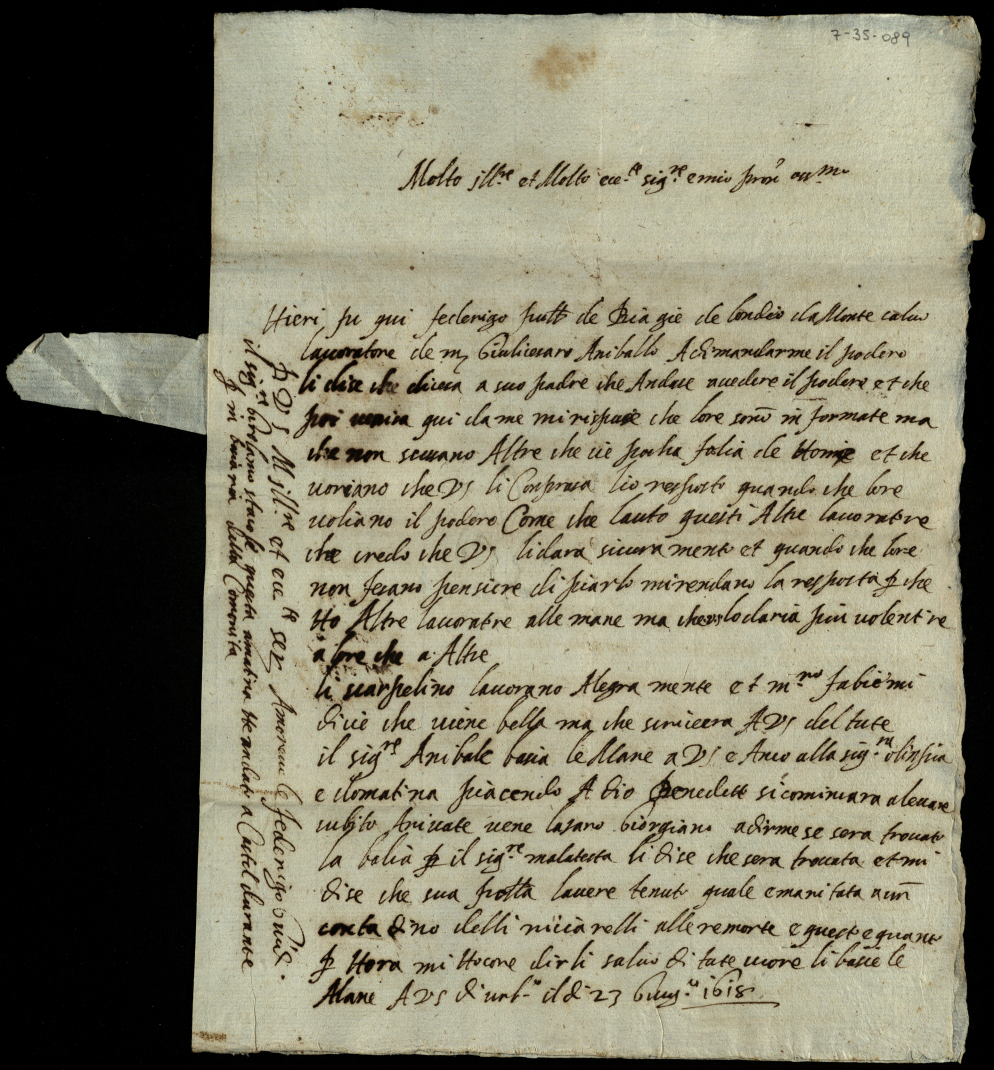 7-35-089
Molto ill.re et Molto ecc.te sig.re e mio pron oss.mo
Hieri fu qui federigo de Biagie de londeio da Monte calvo
lavoratore de m Giulicesaro Aniballo Adimandarme il podero
li dise che dicesa a suo padre che Andase avedere il podere et che
poi qui da me mi rispuse che lore sono in formate ma
che non Altre che cie pocha folia de et che
voriano che VS li lio resposto quando che lore
voliano il podero Come che lauto questi Altre lavoratre
che credo che VS lidara sicura mente et quando che lore
non fesano pensiere di piarlo mirendano la resposta p che
Ho Altre lavoratre alle mane ma che lodaria piu volentire
a lore che a Altre
li scarpelino lavorano Alegra mente et m.ro fabie mi
dicie che viene bella ma che A VS del tute
il sig.re Anibale bacia le Mane a VS e Anco alla sig.ra olinpia
e domatina piacendo A dio Benedett si cominciara a levare
subito Arivate vene lasaro Giorgiano a dirme se sera trovato
la balia p il sig.re malatesta li dise che sera trovata et mi
dise che sua lavere tenut quale e manitata a un
conta dino delli ricciarelli alle remorte e quest e quant
p Hora mi Hocore dirli salvo di tute core li bacie le
Mane A VS di urb.o il di 23 Giug.o 1618
D VS M ill.re et ecc.te ser Amorevole federigo
il sig.re Girolamo questa amatina He andato a Castel durante
p in della Comonita